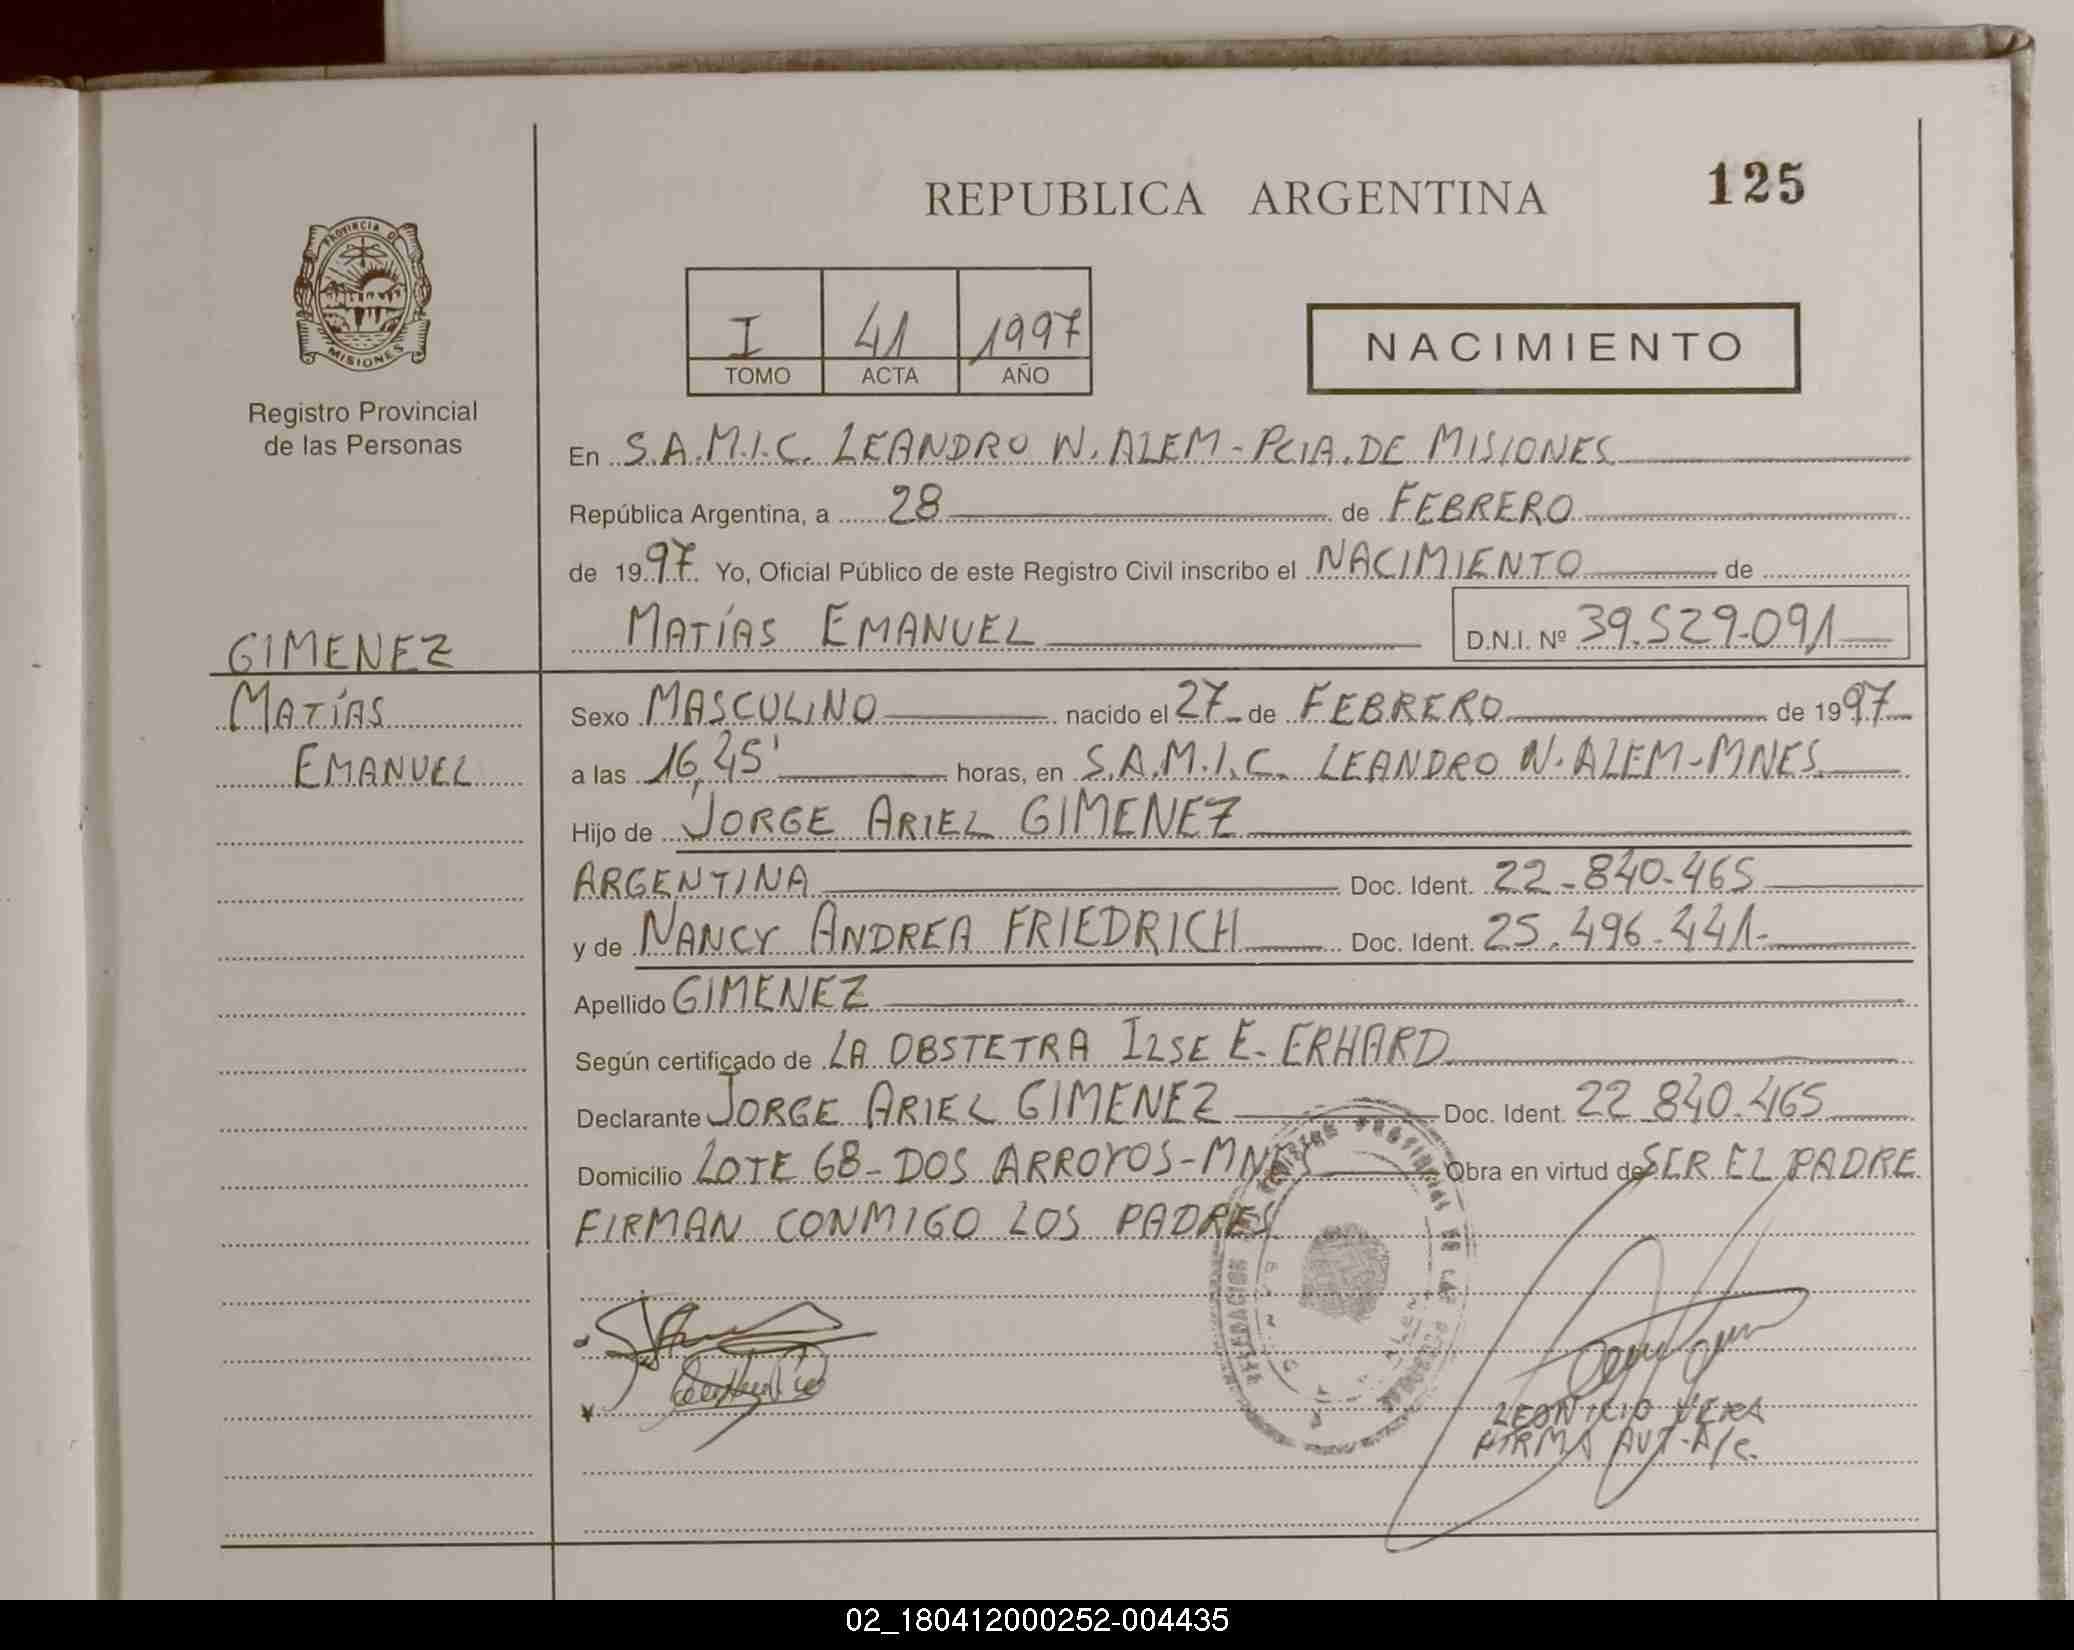 REPUBLICA ARGENTINA
125
PROVINCIA DE
MISIONES
Registro Provincial
de las Personas
I 41 1997
TOMO ACTA AÑO
NACIMIENTO
En S.A.M.I.C. LEANDRO N. ALEM - PCIA. DE MISIONES
República Argentina, a 28 de FEBRERO
de 1997 Yo, Oficial Público de este Registro Civil inscribo el NACIMIENTO de
MATÍAS EMANUEL D.N.I. Nº 39.529.091
GIMENEZ
MATÍAS
EMANUEL
Sexo MASCULINO nacido el 27 de FEBRERO de 1997
a las 16,45' horas, en S.A.M.I.C. LEANDRO N. ALEM - MNES.
Hijo de JORGE ARIEL GIMENEZ
ARGENTINA Doc. Ident. 22.840.465
y de NANCY ANDREA FRIEDRICH Doc. Ident. 25.496.441.
Apellido GIMENEZ
Según certificado de LA OBSTETRA ILSE E. ERHARD
Declarante JORGE ARIEL GIMENEZ Doc. Ident. 22.840.465
Domicilio LOTE 68 - DOS ARROYOS - MNES Obra en virtud de SER EL PADRE
FIRMAN CONMIGO LOS PADRES
VERA
FIRMA AUT. A/C.
02_180412000252-004435